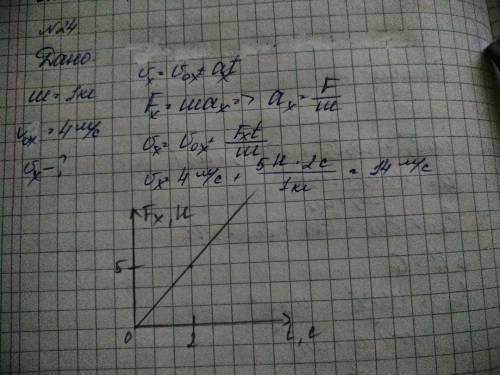 №24
Дано
m = 1кг
v₀ₓ = 4 м/с
vₓ - ?
vₓ = v₀ₓ + aₓt
Fₓ = maₓ => aₓ = F/m
vₓ = v₀ₓ + Fₓt/m
vₓ = 4 м/с + 5 Н · 2с / 1кг = 14 м/с
Fₓ, Н
5
0
t, с